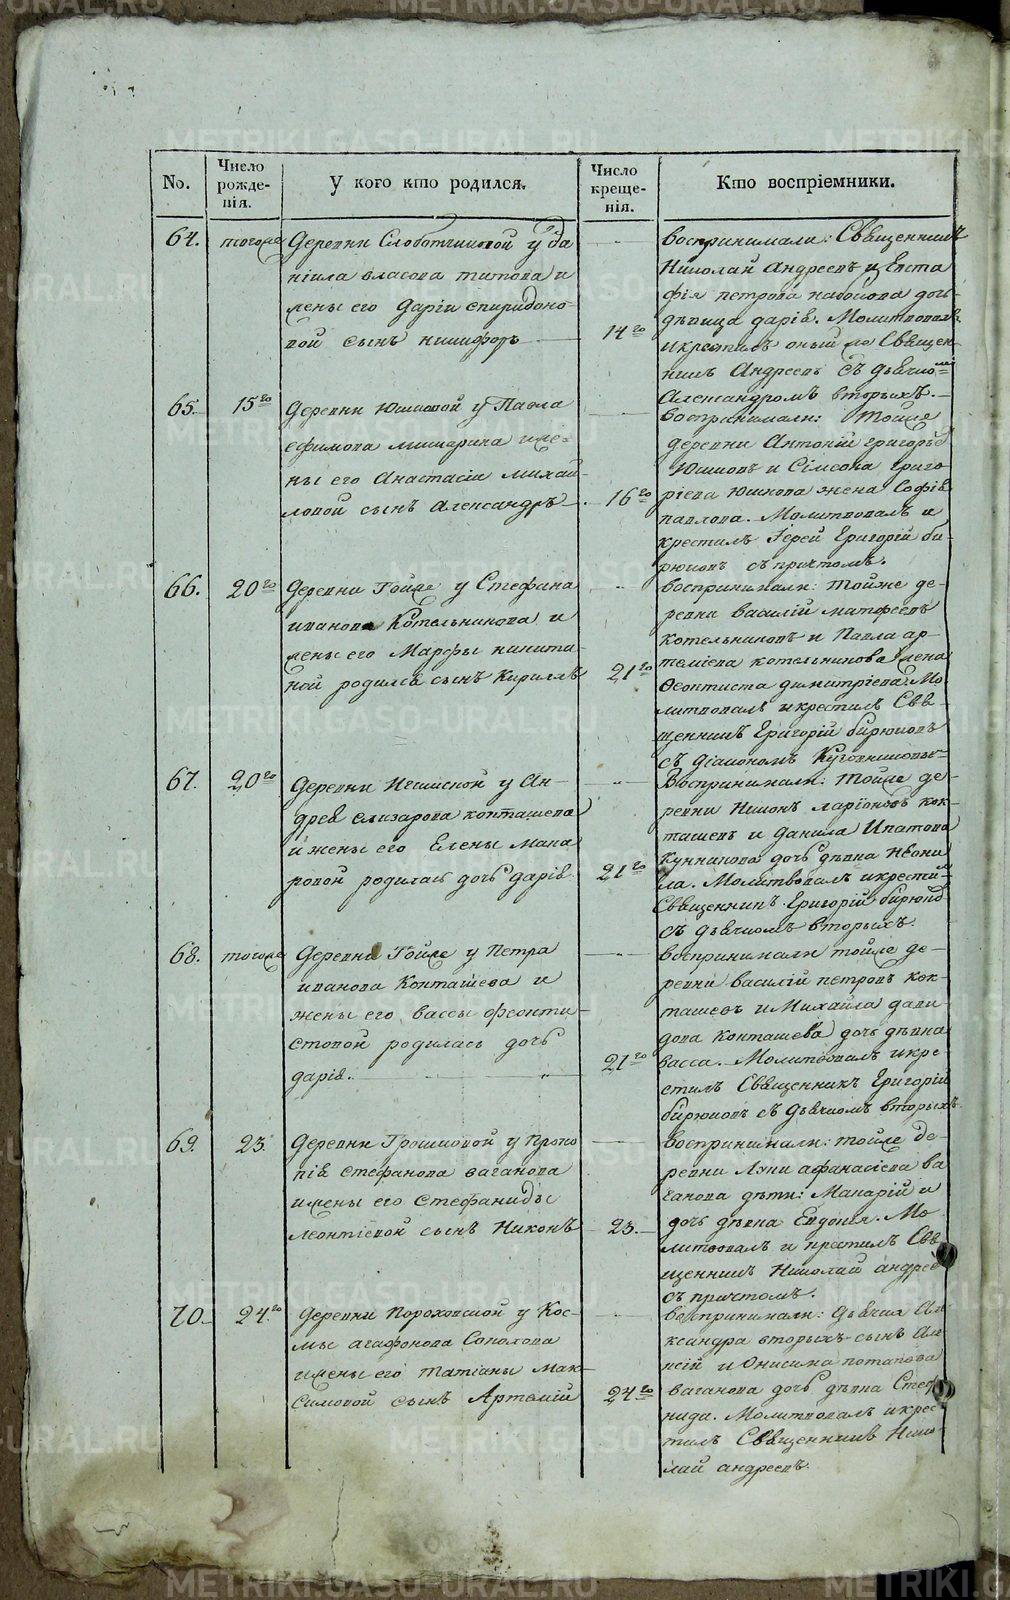 METRIKI.GASO-URAL.RU
No.
Число рожде-нія.
У кого кто родился.
Число креще-нія.
Кто воспріемники.
64.
тогоже
Деревни Слоботчиковой у Да
ніила власова титова и
жены его Даріи спиридоно-
вой сынъ никифоръ
14го
воспринимали: Священникъ
Николай Андреевъ и Евста
фія петрова набойова дочь
дѣвица дарія. Молитвовалъ
и крестилъ оный же Священ-
никъ Андреевъ съ дьячко
Александромъ вторыхъ.
65.
15го
Деревни Юшковой у Павла
ефимова мишарина и же-
ны его Анастасіи михай-
ловой сынъ Александръ
16го
воспринимали: Тойже
деревни Антоній григорьев
Юшковъ и Сімеона григо
ріева Юшкова жена Софія
павлова. Молитвовалъ и
крестилъ Іерей Григорій би-
рюковъ съ причтомъ.
66.
20го
Деревни Тойже у Стефана
иванова Котельникова и
жены его Марфы никити-
ной родился сынъ Кириллъ
21го
воспринимали: Тойже де-
ревни василій матфеевъ
котельниковъ и Павла ар-
теміева котельникова жена
Ѳеоктиста димитріева. Мо-
литвовалъ и крестилъ Свя-
щенникъ Григорій бирюковъ
съ діакономъ
67.
20го
Деревни Исаиской у Ан-
дрея елизарова конташева
и жены его Елены мака
ровой родилась дочь дарія
21го
Воспринимали: Тойже де-
ревни Никонъ ларіоновъ кон-
ташевъ и данила Ипатова
дочь дѣвка Неони
ла. Молитвовалъ и крести-
Священникъ Григорій бирюков
съ дьячкомъ вторыхъ.
68.
тогоже
Деревни Тойже у Петра
иванова Конташева и
жены его вассы феокти-
стовой родилась дочь
дарія.
21го
воспринимали тойже де-
ревни василій петровъ кон-
ташевъ и Михайла дави-
дова Конташева дочь дѣвка
васса. Молитвовалъ и кре
стилъ Священникъ Григорій
бирюковъ съ дьячкомъ вторыхъ
69.
23.
Деревни Грошковой у Проко
пія стефанова ваганова
и жены его стефаниды
леонтіевой сынъ Никонъ
23.
воспринимали: тойже де-
ревни Луки афанасіева ва
ганова дѣти: Макарій и
дочь дѣвка Евдокія. Мо
литвовалъ и крестилъ Свя
щенникъ Николай андреев
съ причтомъ.
70.
24го
Деревни Пороховской у Кос-
мы агафонова Соколова
и жены его татіаны мак-
симовой сынъ Артемій
24го
воспринимали: Дьячка Але
ксандра вторыхъ сынъ Але
ксій и Онисима потапова
ваганова дочь дѣвка Стефа
нида. Молитвовалъ и крес-
тилъ Священникъ Нико-
лай андреевъ.